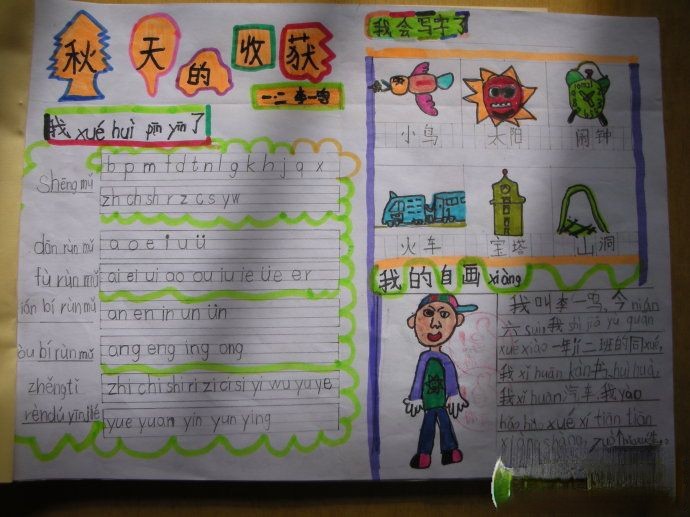 秋天的收获
一二 李一鸣
我xué huì pīn yīn了
Shēng mǔ
b p m f d t n l g k h j q x
zh ch sh r z c s y w
dān rùn mǔ
a o e i u ü
fù rùn mǔ
ai ei ui ao ou iu ie üe er
bí rùn mǔ
an en in un ün
bí rùn mǔ
ang eng ing ong
zhěng tǐ
rèn dú yīn jié
zhi chi shi ri zi ci si yi wu yu ye
yue yuan yin yun ying
我会写字了
小鸟
太阳
闹钟
火车
宝塔
山洞
我的自画xiàng
我叫李一鸣,今nián
六suì,我shì
xué xiào 一年jí二班的同xué,
我xǐ huān kàn书,huì huà,
我xǐ huān汽车.我yào
hǎo hǎo xué xí tiān tiān
xiàng shàng,